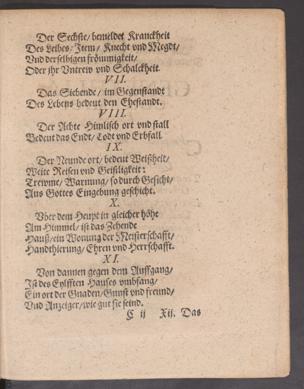 Der Sechste/ bemeldet Kranckheit
Des Leibes/ Item/ Knecht vnd Megdt/
Vnd derselbigen frömmigkeit/
Oder jhr Vntrew vnd Schalckheit.
VII.
Das Siebende/ im Gegenstandt
Des Lebens bedeut den Ehestandt.
VIII.
Der Achte Himlisch ort vnd stall
Bedeut das Endt/ Todt vnd Erbfall.
IX.
Der Neunde ort/ bedeut Weißheit/
Weite Reisen vnd Geistligkeit:
Trewme/ Warnung/ so durch Gesicht/
Aus Gottes Eingebung geschicht.
X.
Vber dem Heupt in gleicher höhe
Am Himmel/ ist das Zehende
Hauß/ ein Wonung der Meisterschafft/
Handthierung/ Ehren vnd Herrschafft.
XI.
Von dannen gegen dem Auffgang/
Ist des Eylfften Hauses vmbfang/
Ein ort der Gnaden/ Gunst vnd freund/
Vnd Anzeiger/ wie gut sie seind.
C ij Xij. Das